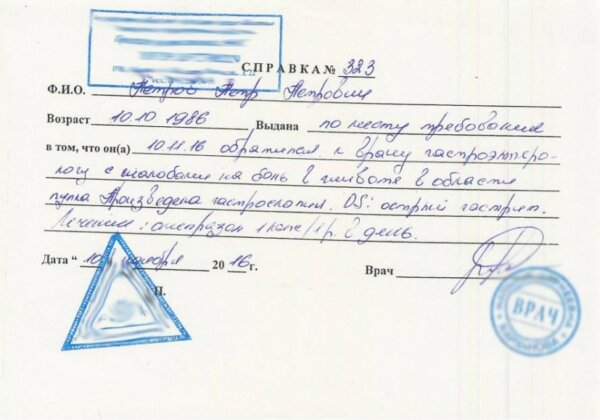 СПРАВКА № 323
Ф.И.О. Петров Петр Петрович
Возраст 10.10 1986 Выдана по месту требования
в том, что он(а) 10.11.16 обратился к врачу гастроэнтеро-
логу с жалобами на боль в животе в области
пупка Произведена гастроскопия. DS: острый гастрит.
Лечение: омепразол 1 капс/1 р. в день.
Дата “ 10 ноября 2016г. Врач
П.
ВРАЧ